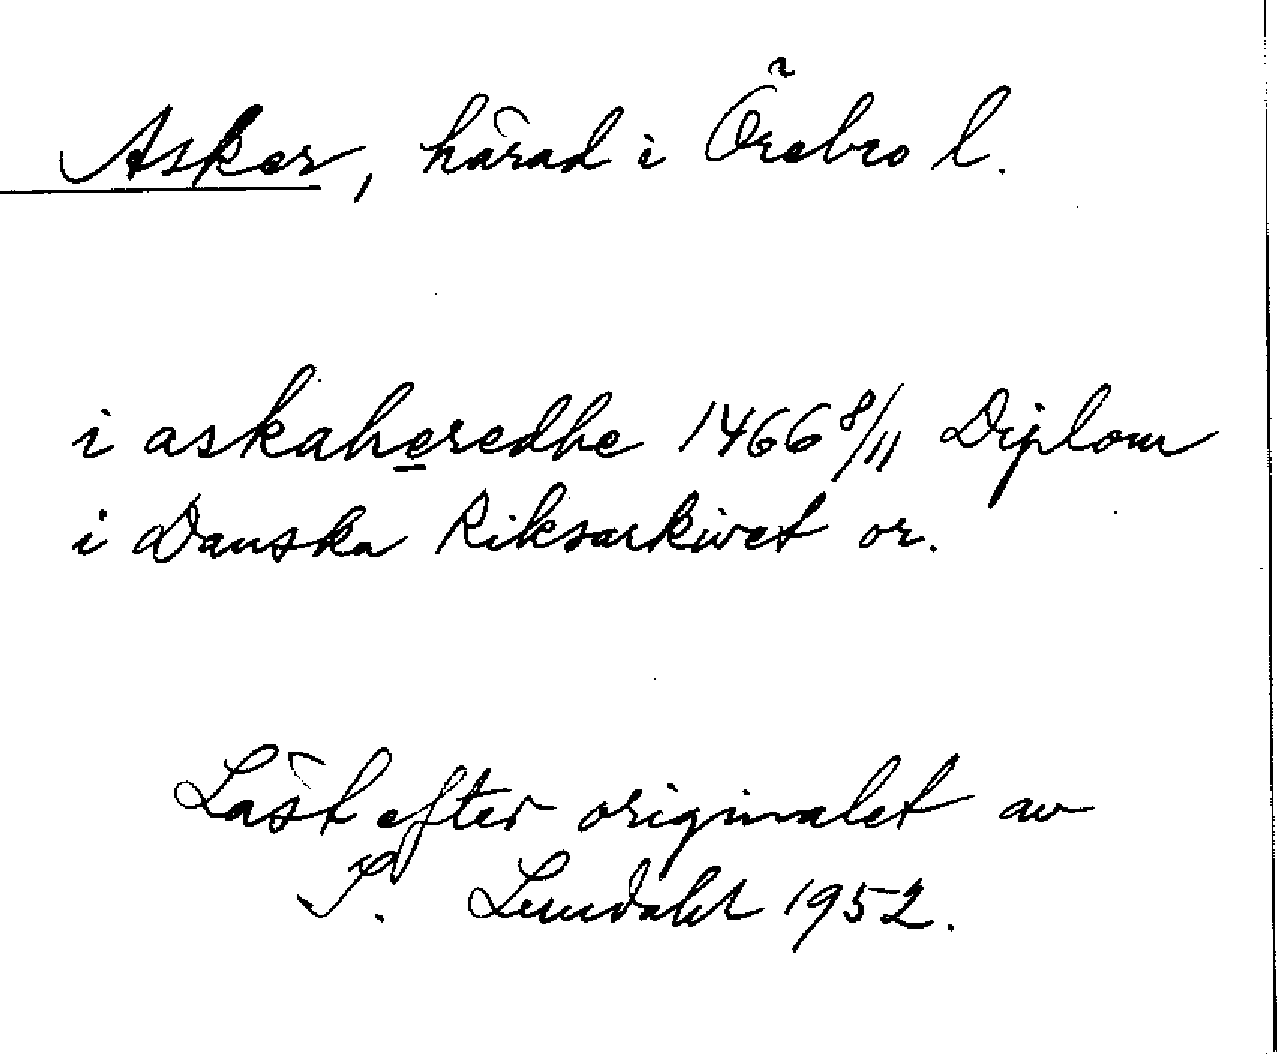 Asker, härad i Örebro l.
i askaheredhe 1466 8/11 Diplom
i Danska Riksarkivet or.
Läst efter originalet av
I. Lundahl 1952.